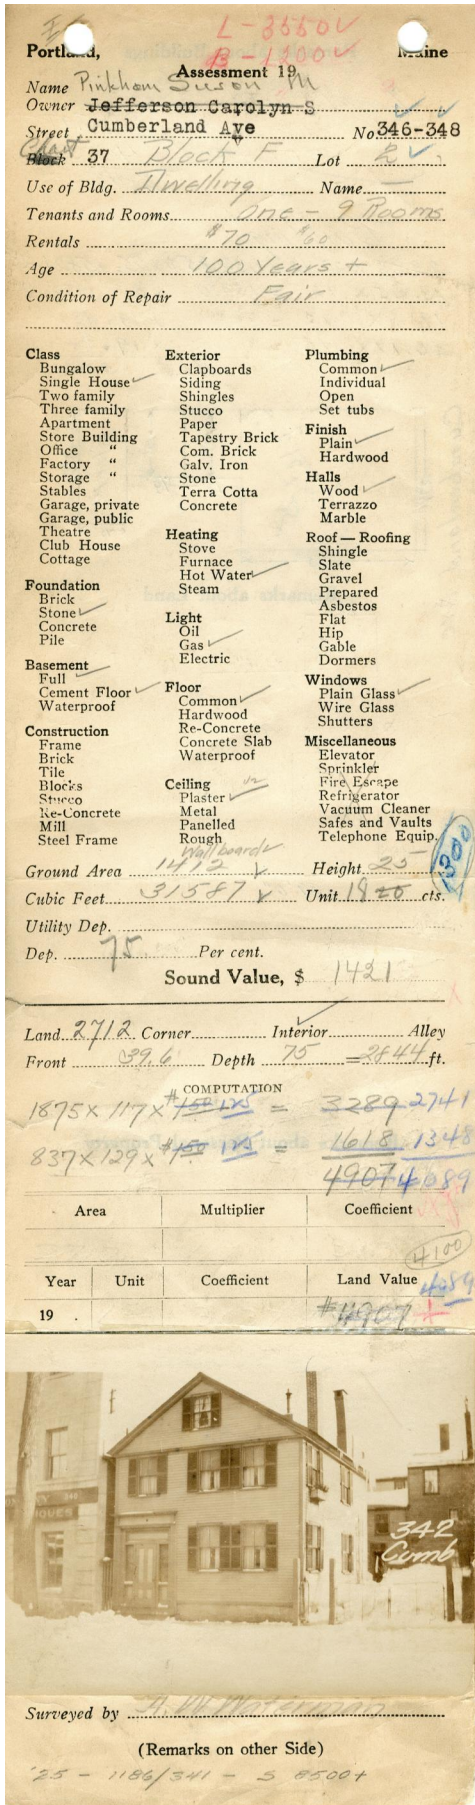 L-3550✓
B-1200✓
Portland, Maine
Assessment 19
Name Pinkham Susan M
Owner Jefferson Carolyn S
Street Cumberland Ave No 346-348
Chart Block 37 Block F Lot 2 ✓
Use of Bldg. Dwelling Name —
Tenants and Rooms One - 9 Rooms
Rentals $70 $60
Age 100 Years +
Condition of Repair Fair
Class
Bungalow
Single House ✓
Two family
Three family
Apartment
Store Building
Office "
Factory "
Storage "
Stables
Garage, private
Garage, public
Theatre
Club House
Cottage
Foundation
Brick
Stone ✓
Concrete
Pile
Basement
Full ✓
Cement Floor ✓
Waterproof
Construction
Frame
Brick
Tile
Blocks
Stucco
Re-Concrete
Mill
Steel Frame
Exterior
Clapboards
Siding
Shingles
Stucco
Paper
Tapestry Brick
Com. Brick
Galv. Iron
Stone
Terra Cotta
Concrete
Heating
Stove
Furnace
Hot Water ✓
Steam
Light
Oil
Gas ✓
Electric
Floor
Common ✓
Hardwood
Re-Concrete
Concrete Slab
Waterproof
Ceiling 1/2
Plaster ✓
Metal
Panelled
Rough
Wallboard ✓
Plumbing
Common ✓
Individual
Open
Set tubs
Finish
Plain ✓
Hardwood
Halls
Wood ✓
Terrazzo
Marble
Roof — Roofing
Shingle
Slate
Gravel
Prepared
Asbestos
Flat
Hip
Gable
Dormers
Windows
Plain Glass ✓
Wire Glass
Shutters
Miscellaneous
Elevator
Sprinkler
Fire Escape
Refrigerator
Vacuum Cleaner
Safes and Vaults
Telephone Equip.
1300
Ground Area 1412 ✓ Height 25
Cubic Feet 31587 ✓ Unit 18 20 cts.
Utility Dep.
Dep. 75 Per cent.
Sound Value, $ 1421
Land 2712 Corner Interior ✓ Alley
Front 39.6 Depth 75 = 2844 ft.
COMPUTATION
1875 x 117 x $150 125 = 3289 2741
837 x 129 x $150 125 = 1618 1348
4907 4089
Area Multiplier Coefficient
4100
Year Unit Coefficient Land Value 4089
19 . $4907
342
Comb
Surveyed by A. W. Waterman
(Remarks on other Side)
'25 - 1186/341 - S 8500+